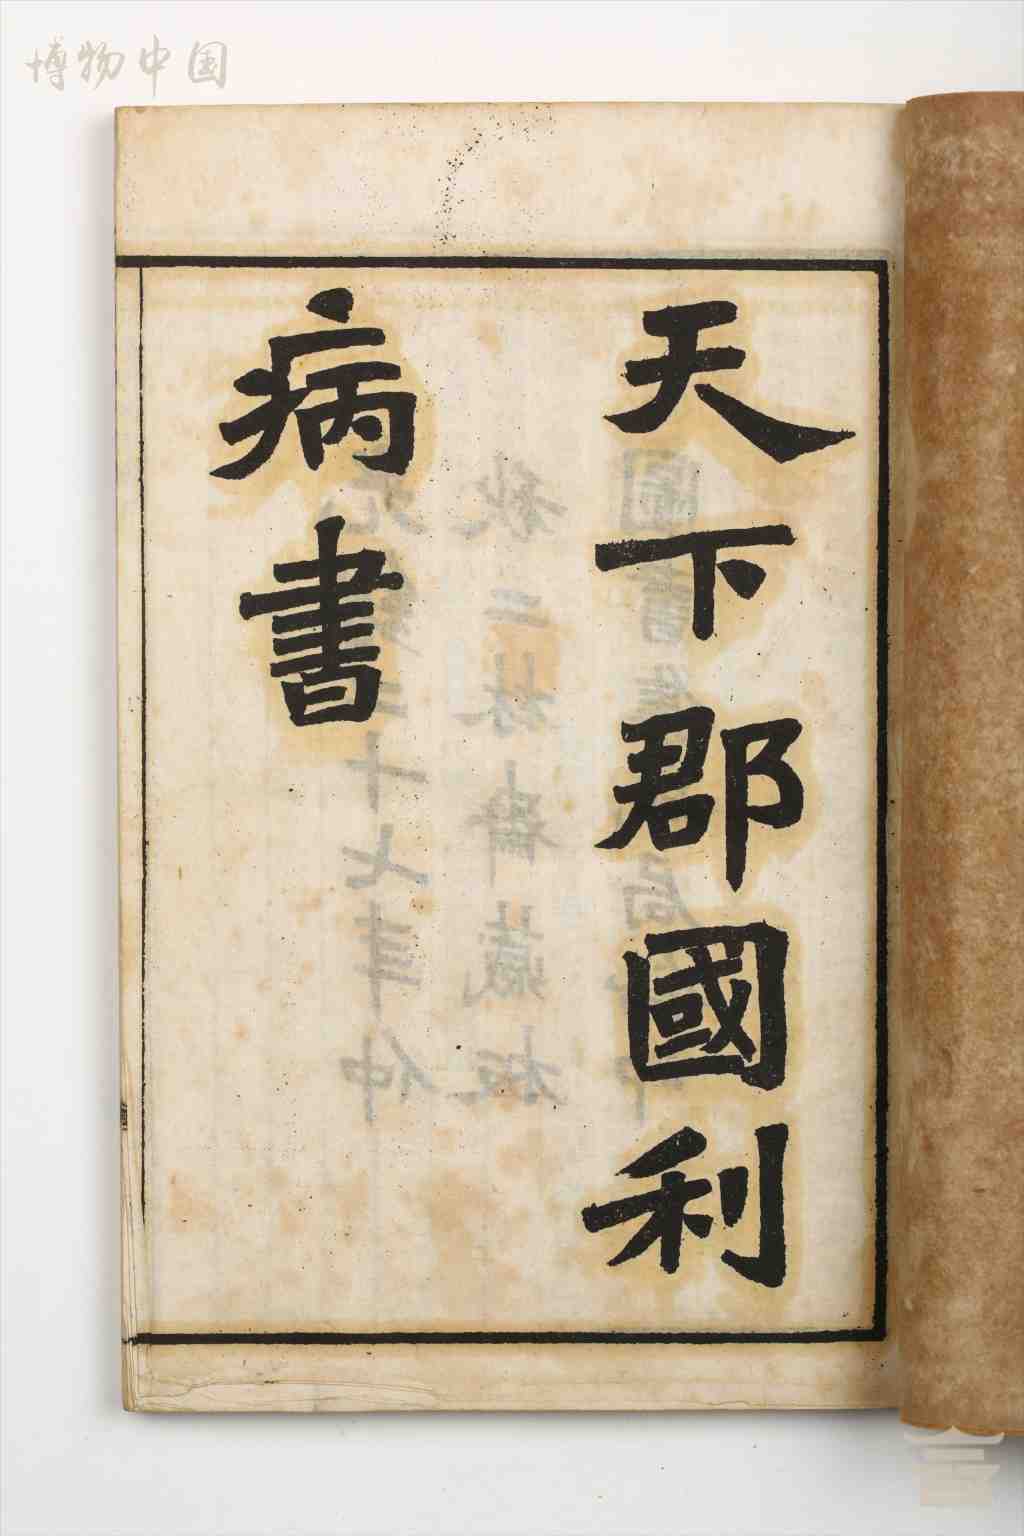 博物中国
天下郡國利
病書